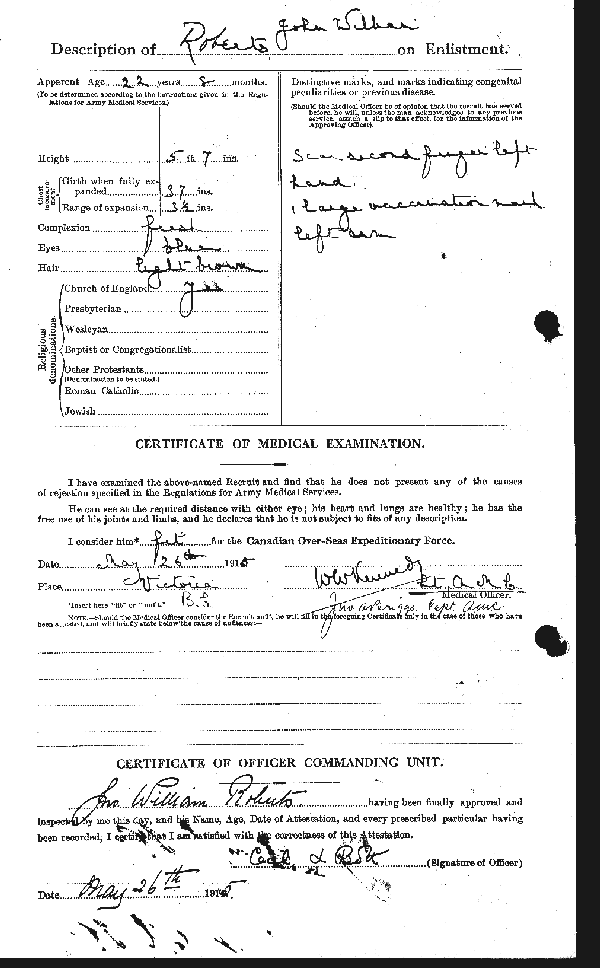 John William
Description of Roberts on Enlistment.
Apparent Age 22 years 8 months.
(To be determined according to the instructions given in the Regulations for Army Medical Services.)
Height 5 ft. 7 ins.
Chest measurement
Girth when fully expanded 37 ins.
Range of expansion 3½ ins.
Complexion fresh
Eyes blue
Hair light brown
Religious denominations.
Church of England Yes
Presbyterian
Wesleyan
Baptist or Congregationalist
Other Protestants
(Denomination to be stated.)
Roman Catholic
Jewish
Distinctive marks, and marks indicating congenital
peculiarities or previous disease.
(Should the Medical Officer be of opinion that the recruit has served
before, he will, unless the man acknowledges to any previous
service, attach a slip to that effect, for the information of the
Approving Officer).
Scar second finger left
hand.
1 large vaccination mark
left arm
CERTIFICATE OF MEDICAL EXAMINATION.
I have examined the above-named Recruit and find that he does not present any of the causes
of rejection specified in the Regulations for Army Medical Services.
He can see at the required distance with either eye; his heart and lungs are healthy; he has the
free use of his joints and limbs, and he declares that he is not subject to fits of any description.
I consider him* fit for the Canadian Over-Seas Expeditionary Force.
Date May 26th 1915
Place Victoria
B.C.
Lt. A.M.C.
Medical Officer.
*Insert here "fit" or "unfit."
Capt AMC
NOTE.—Should the Medical Officer consider the Recruit unfit, he will fill in the foregoing Certificate only in the case of those who have
been attested, and will briefly state below the cause of unfitness:—
CERTIFICATE OF OFFICER COMMANDING UNIT.
Jno William Roberts having been finally approved and
inspected by me this day, and his Name, Age, Date of Attestation, and every prescribed particular having
been recorded, I certify that I am satisfied with the correctness of this Attestation.
(Signature of Officer)
Date May 26th 1915